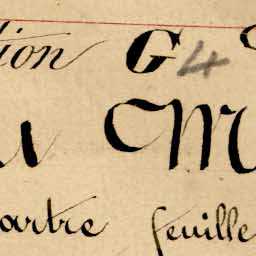 tion G 4
M
artre feuille